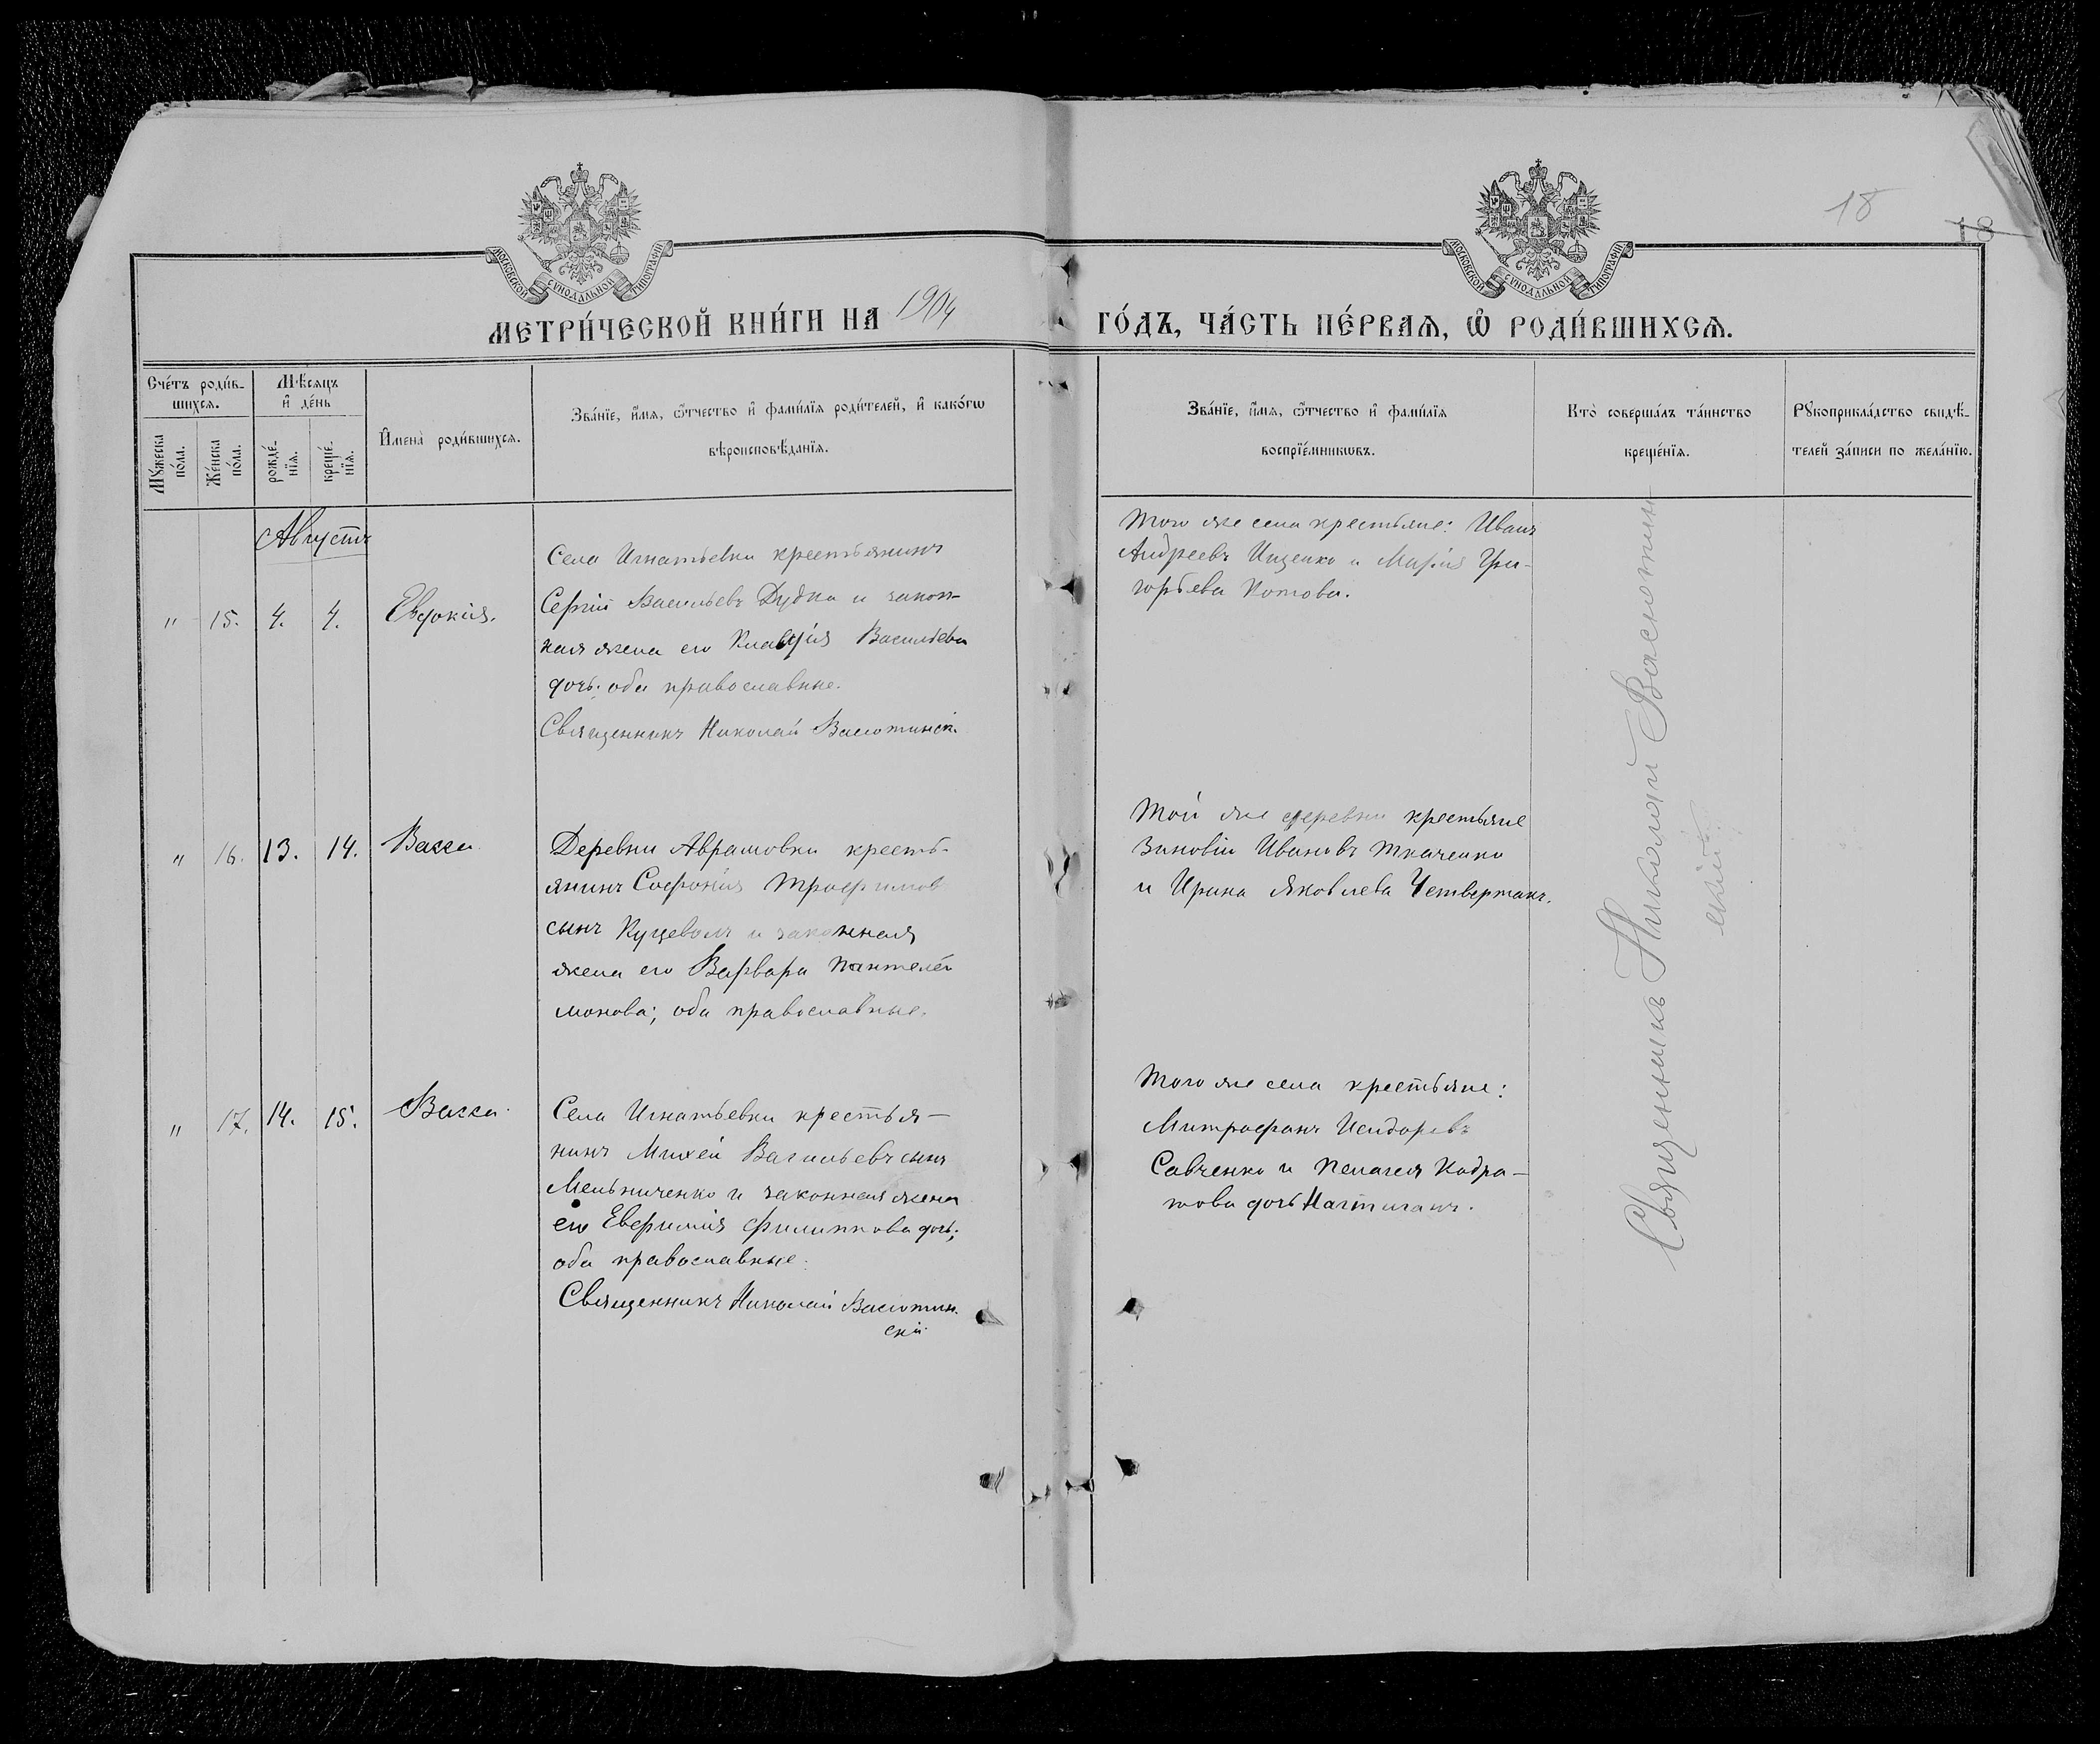 18
18
МОСКОВСКОЙ СѴНОДАЛЬНОЙ ТИПОГРАФІИ
МОСКОВСКОЙ СѴНОДАЛЬНОЙ ТИПОГРАФІИ
МЕТРИ́ЧЕСКОЙ КНИ́ГИ НА 1904
ГО́ДЪ, ЧА́СТЬ ПЕ́РВАѦ, Ѡ҆ РОДИ́ВШИХСѦ.
Сче́тъ роди́в-
шихсѧ.
Мꙋ́жеска
по́ла.
Же́нска
по́ла.
Мѣ́сѧцъ
и҆ де́нь
рожде́-
нїѧ.
креще́-
нїѧ.
И҆мена̀ роди́вшихсѧ.
Зва́нїе, и҆́мѧ, ѻ҆́тчество и҆ фами́лїѧ роди́телей, и҆ како́гѡ
вѣроисповѣ́данїѧ.
Зва́нїе, и҆́мѧ, ѻ҆́тчество и҆ фами́лїѧ
воспрїе́мникѡвъ.
Кто̀ соверша́лъ та́инство
креще́нїѧ.
Рꙋкоприкла́дство свидѣ́-
телей за́писи по жела́нїю.
Августъ
" 15. 4. 4. Евдокія.
Села Игнатьевки крестьянинъ
Сергій Васильевъ Дудка и закон-
ная жена его Клавдія Васильева
дочь; оба православные.
Священникъ Николай Васютинск.
Того же села крестьяне: Иванъ
Андреевъ Ищенко и Марія Гри-
горьева Котова.
" 16. 13. 14. Васса.
Деревни Аврамовки кресть-
янинъ Софонія Трофимов
сынъ Куцеволъ и законная
жена его Варвара Пантелеи
монова; оба православные.
Той же деревни крестьяне
Зиновій Ивановъ Ткаченко
и Ирина Яковлева Четвертакъ.
" 17. 14. 15. Васса.
Села Игнатьевки крестья-
нинъ Михей Васильевъ сынъ
Мельниченко и законная жена
его Евфимія Филиппова дочь;
оба православные.
Священникъ Николай Васютин.
скій
Того же села крестьяне:
Митрофанъ Исидоревъ
Савченко и Пелагея Кодра-
това дочь
Священникъ Николай Васютин
скій.